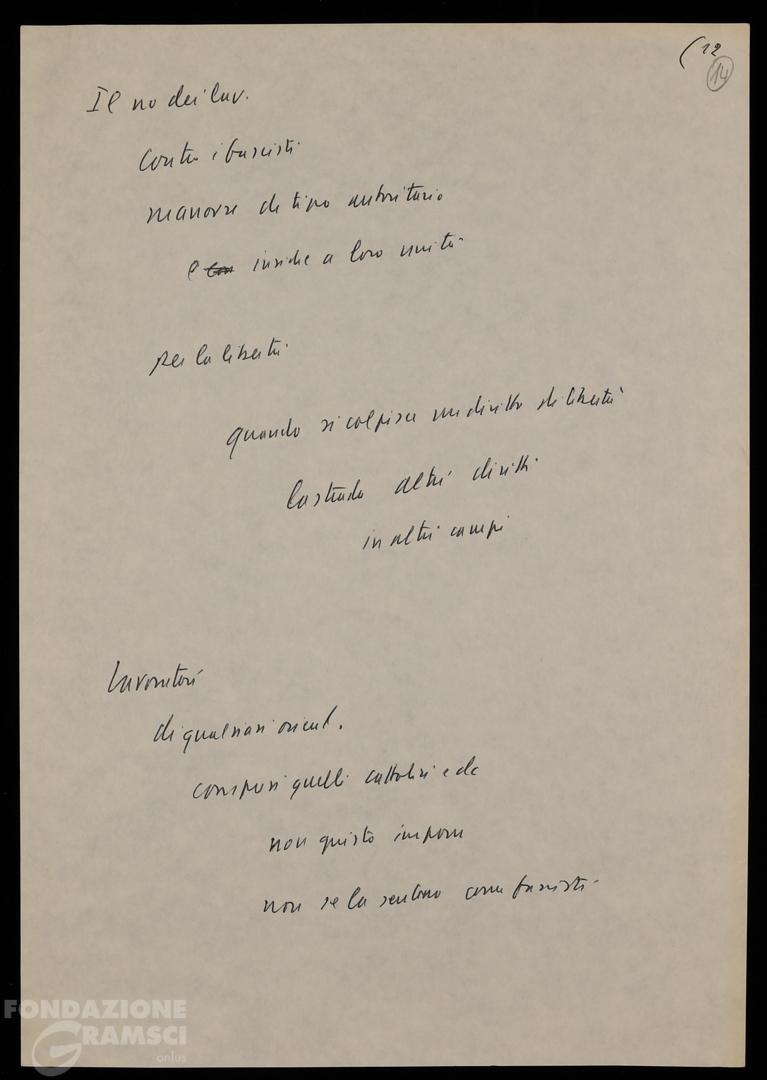 (12
14
Il no dei lav.
contro i fascisti
manovre di tipo autoritario
e insidie a loro unità
per la libertà
quando si colpisce un diritto di libertà
la strada altri diritti
in altri campi
Lavoratori
di qualsiasi orient.
compresi quelli cattolici e dc
non giusto imporre
non se la sentono con fascisti
FONDAZIONE
GRAMSCI
onlus